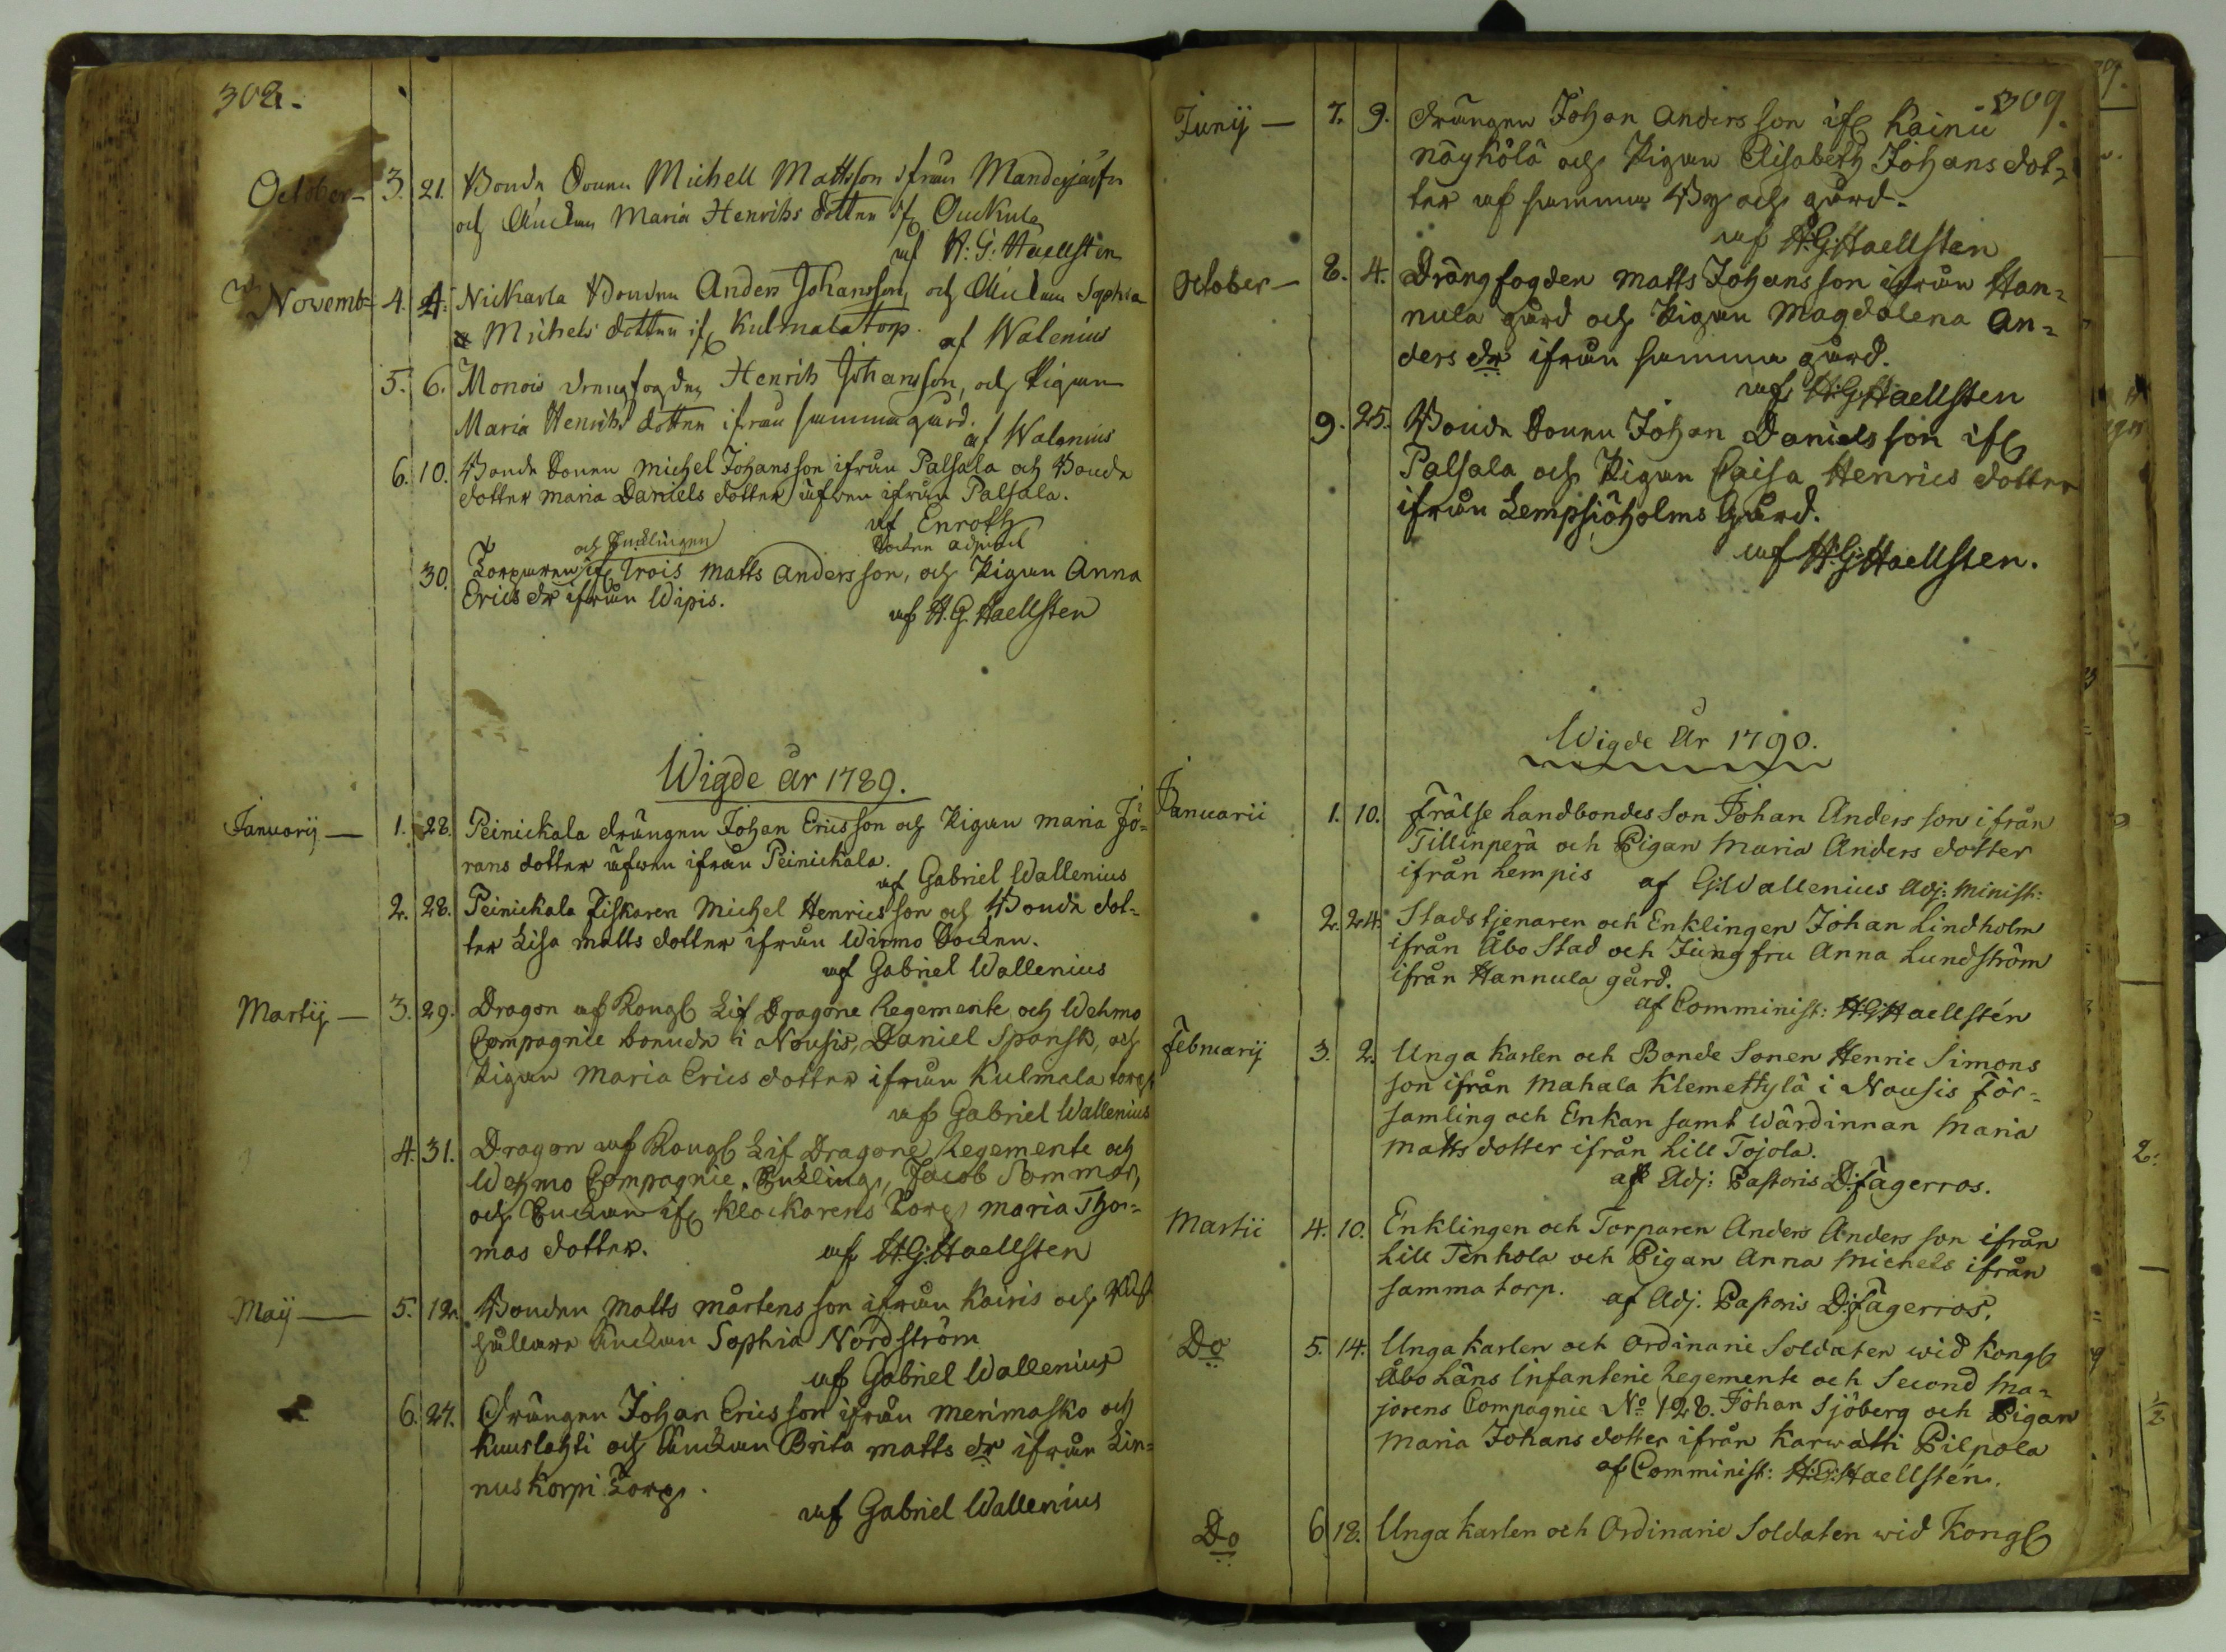 308.
October - 3. 21. Bonde Sonen Michell Mattsson ifrån
och Änckan Maria Henrichs dotter if: Ouckula
af H: G: Haellsten
Novemb= 4. 4. Nickarla Bonden Anders Johansson, och Änckan Sophia
Michels dotter if: Kulmala torp. af Walenius
5. 6. Monois drengfogden Henrih Johansson, och Pigan
Maria Henrihs dotter ifrån samma gård.
af Walenius
6. 10. Bonde Sonen Michel Johansson ifrån Palsala och Bonde
dotter Maria Daniels dotter äfwen ifrån Palsala.
af Enroth
Sockne adjunct
och Encklingen
30. Torparen if: Trois Matts Andersson, och Pigan Anna
Erics dr ifrån Wipis.
af H. G. Haellsten
Wigde år 1789.
Januarij - 1. 28. Peinickala drängen Johan Ericsson och Pigan Maria Jö=
rans dotter äfwen ifrån Peinickala.
af Gabriel Wallenius
2. 28. Peinickala Fiskaren Michel Henricsson och Bonde dot=
ter Lisa Matts dotter ifrån Wirmo Socken.
af Gabriel Wallenius
Martij - 3. 29. Dragon af Kongl Lif Dragone Regemente och Wehmo
Compagnie boende i Nousis, Daniel Spansk, och
Pigan Maria Erics dotter ifrån Kulmala torp
af Gabriel Wallenius
4. 31. Dragon af Kongl Lif Dragone Regemente och
Wehmo Compagnie, Enckling, Jacob Sommar,
och Enckan if: Klockarens Torp Maria Tho=
mas dotter. af H:G:Haellsten
Maij - 5. 12. Bonden Matts Mårtensson ifrån Kairis och
hållare Änckan Sophia Nordström
af Gabriel Wallenius
6. 24. Drängen Johan Ericsson ifrån Merimasko och
Kuuslahti och Änckan Brita Matts dr ifrån Lin=
nuskorpi Torp.
af Gabriel Wallenius
309.
Junij - 7. 9. Drängen Johan Andersson if: Kainu
näyhölä och Pigan Elisabeth Johansdot=
ter af samma By och gård.
af H:G:Haellsten
October - 8. 4. Drängfogden Matts Johansson ifrån Han=
nula gård och Pigan Magdalena An=
ders dr ifrån samma gård.
af H:G:Haellsten
9. 25. Bonde Sonen Johan Danielsson if:
Palsala och Pigan Caisa Henrics dotter
ifrån Lempsiöholms Gård.
af H:G:Haellsten.
Wigde År 1790.
Januarii 1. 10. Frälse Landbondes Son Johan Andersson ifrån
Tillinperä och Pigan Maria Anders dotter
ifrån Lempis af G:Wallenius Adj: Minist:
2. 24. Stadstjenaren och Enklingen Johan Lindholm
ifrån Åbo Stad och Jungfru Anna Lundström
ifrån Hannula gård.
af Comminist: H:G:Haellstén
Februarij 3. 2. Unga Karlen och Bonde Sonen Henric Simons
son ifrån Mahala Klemettylä i Nousis För=
samling och Enkan samt Wärdinnan Maria
Matts dotter ifrån Lill Tojola.
af Adj: Pastoris D:Fagerros.
Martii 4. 10. Enklingen och Torparen Anders Andersson ifrån
Lill Tenhola och Pigan Anna Michels ifrån
samma torp. af Adj. Pastoris D:Fagerros.
Do 5. 14. Unga Karlen och Ordinarie Soldaten wid Kongl
Åbo Läns Infanterie Regemente och Second Ma=
jorens Compagnie No 128. Johan Sjöberg och Pigan
Maria Johans dotter ifrån Karwatti Pilpola
af Comminist: H:G:Haellstén.
Do 6. 18. Unga Karlen och Ordinarie Soldaten wid Kongl